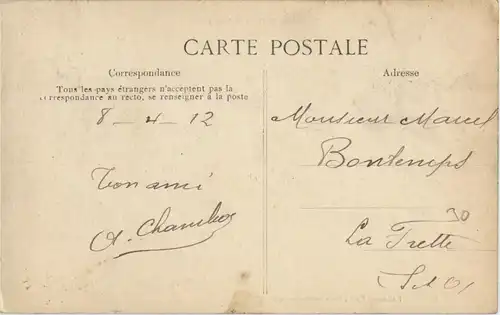 CARTE POSTALE
Correspondance
Tous les pays étrangers n'acceptent pas la
correspondance au recto, se renseigner à la poste
8 - 4 - 12
Ton ami
A. Chambos
Adresse
Monsieur Marcel
Bontemps
30
La Frette
S et O